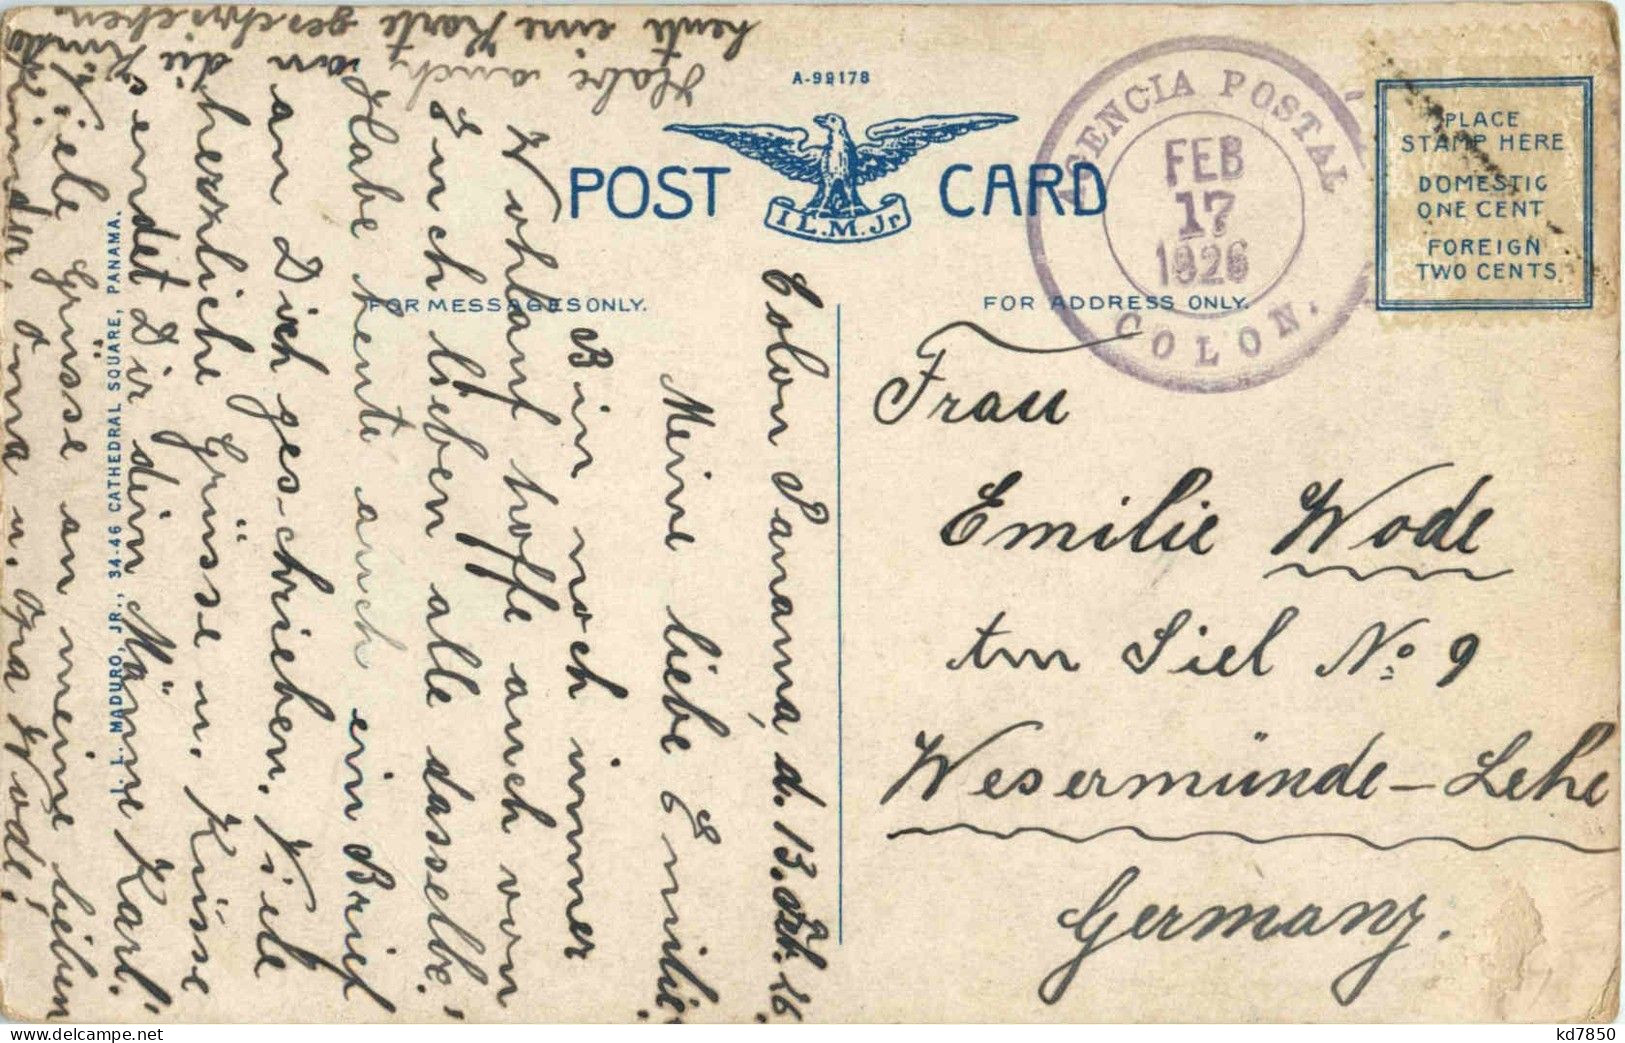 A-99178
POST CARD
I.L.M.Jr.
FOR MESSAGES ONLY.
FOR ADDRESS ONLY.
AGENCIA POSTAL
FEB
17
1926
COLON.
PLACE
STAMP HERE
DOMESTIC
ONE CENT
FOREIGN
TWO CENTS
Frau
Emilie Wode
Am Siel No. 9
Wesermünde-Lehe
Germany.
Colon Panama, d. 13. Feb. 26.
Meine liebe Emilie!
Bin noch immer
Wohlauf hoffe auch von
Euch lieben alle dasselbe!
Habe heute auch ein Brief
an Dich geschrieben. Viele
herzliche Grüsse u. Küsse
sendet Dir dein Männe Karl!
Viele Grüsse an meine lieben
Kinder, Oma u. Opa Wode!
Habe auch an die Kinder
heute eine Karte geschrieben.
I. L. MADURO, JR., 34-46 CATHEDRAL SQUARE, PANAMA.
kd7850